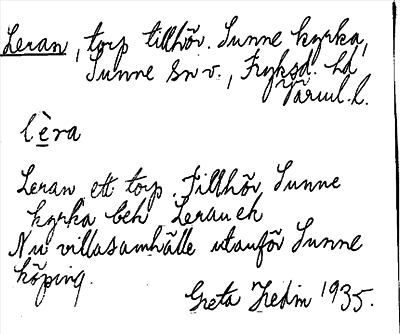 Leran, torp tillhör. Sunne kyrka,
Sunne sn v., Fryksd. hd
Värml. l.
lèra
Leran ett torp. Tillhör, Sunne
kyrka beh Leran eh
Nu villasamhälle utanför Sunne
köping.
Greta Hedin 1935.